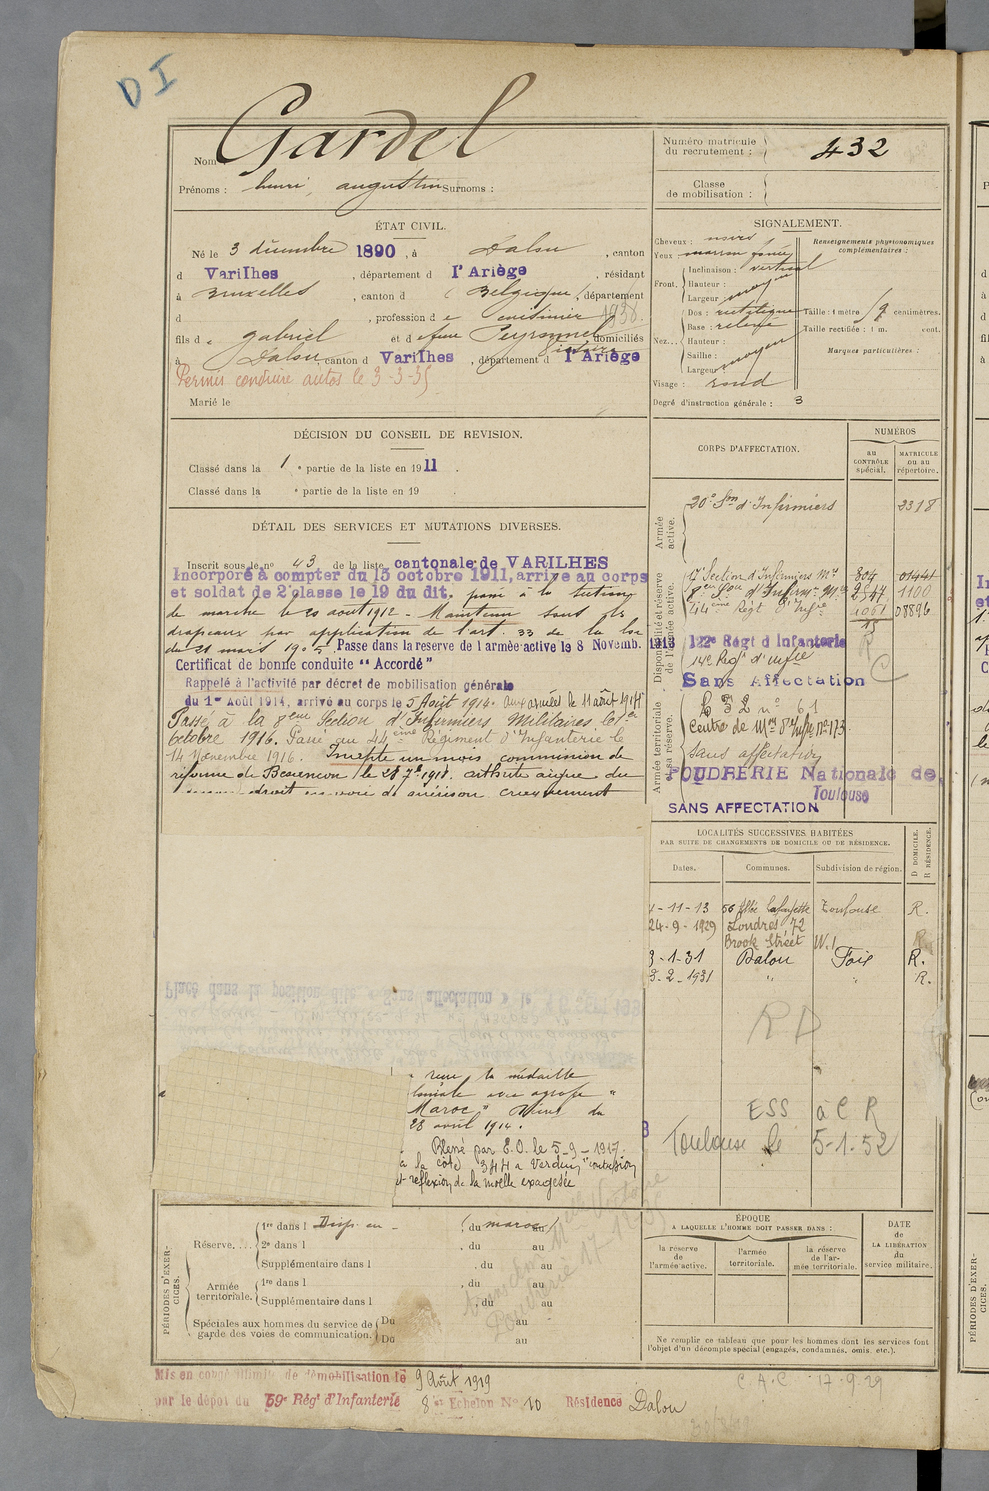 D I
Nom : Gardel
Prénoms : henri, augustin Surnoms :
Numéro matricule du recrutement : 432
Classe de mobilisation :
ÉTAT CIVIL.
Né le 3 décembre 1890, à Dalou, canton
d Varilhes, département d l'Ariège, résidant
à Bruxelles, canton d (Belgique), département
d , profession d e cuisinier 1938.
fils d e gabriel et d e feue Peyronnel domiciliés
à Dalou canton d Varilhes, département d l'Ariège
Permis conduire autos le 3-3-35
Marié le
SIGNALEMENT.
Cheveux : noirs
Yeux marron foncé
Front. Inclinaison : vertical
Hauteur :
Largeur moyen
Nez... Dos : rectiligne
Base : relevé
Hauteur :
Saillie :
Largeur moyen
Visage : rond
Degré d'instruction générale : 3
Renseignements physionomiques complémentaires :
Taille : 1 mètre centimètres.
Taille rectifiée : 1 m. cent.
Marques particulières :
DÉCISION DU CONSEIL DE REVISION.
Classé dans la 1re partie de la liste en 1911.
Classé dans la e partie de la liste en 19
DÉTAIL DES SERVICES ET MUTATIONS DIVERSES.
Inscrit sous le no 43 de la liste cantonale de VARILHES
Incorporé à compter du 13 octobre 1911, arrivé au corps
et soldat de 2e classe le 19 du dit. passé à la section
de marche le 20 août 1912 - Maintenu sous les
drapeaux par application de l'art. 33 de la loi
du 21 mars 1905. Passe dans la reserve de l armée active le 8 Novemb. 1913
Certificat de bonne conduite "Accordé"
Rappelé à l'activité par décret de mobilisation générale
du 1er Août 1914, arrivé au corps le 5 Août 1914. aux armées le 11 août 1914
Passé à la 8eme Section d'Infirmiers Militaires le 1er
octobre 1916. Passé au 44eme Régiment d'Infanterie le
14 Novembre 1916. Inapte un mois commission de
réforme de Besançon le 28 7bre 1918. arthrite aigue du
droit en voie de guérison
CORPS D'AFFECTATION.
NUMÉROS
au CONTRÔLE spécial.
MATRICULE ou au répertoire.
Armée active.
20e Son d'Infirmiers 2318
Disponibilité et réserve de l'armée active.
17e Section d'Infirmiers Mres 804 01441
8eme Son d'Infirm. Mres 2547 1100
44eme Régt d'Infie 1061 08896
122e Régt d Infanterie
14e Regt d'infie
Sans Affectation
R
C
Armée territoriale et sa réserve.
C 32 no 61
Centre de Mon d'Infie no 173
Sans affectation
POUDRERIE Nationale de
Toulouse
SANS AFFECTATION
LOCALITÉS SUCCESSIVES HABITÉES
PAR SUITE DE CHANGEMENTS DE DOMICILE OU DE RÉSIDENCE.
Dates. Communes. Subdivision de région. D DOMICILE. R RÉSIDENCE.
4-11-13 56 Allée Lafayette Toulouse R.
24-9-1929 Londres 72
Brook Street W.1
3-1-31 Dalou Foix R.
3-2-1931 " " R.
R D
ESS à C R
Toulouse le 5-1-52
Placé dans la position dite « Sans affectation » le
a reçu la médaille
coloniale avec agrafe "
Maroc"
28 avril 1914.
Blessé par E.O. le 5-9-1917
à la cote 344 à Verdun "contusion
et reflexion de la moelle exagérée
PÉRIODES D'EXERCICES.
Réserve.... 1re dans l Disp. au - (du maroc) au
2e dans l , du au
Supplémentaire dans l , du au
Armée territoriale. 1re dans l , du au
Supplémentaire dans l , du au
Spéciales aux hommes du service de garde des voies de communication. Du au
Du au
ÉPOQUE
A LAQUELLE L'HOMME DOIT PASSER DANS :
la réserve de l'armée active.
l'armée territoriale.
la réserve de l'armée territoriale.
DATE DE LA LIBÉRATION du service militaire.
Ne remplir ce tableau que pour les hommes dont les services font l'objet d'un décompte spécial (engagés, condamnés, omis, etc.).
Mis en congé illimité de démobilisation le 9 Août 1919
par le dépôt du 59e Régt d'Infanterie 8e Echelon No 10 Résidence Dalou
C.A.C. 17.9.29